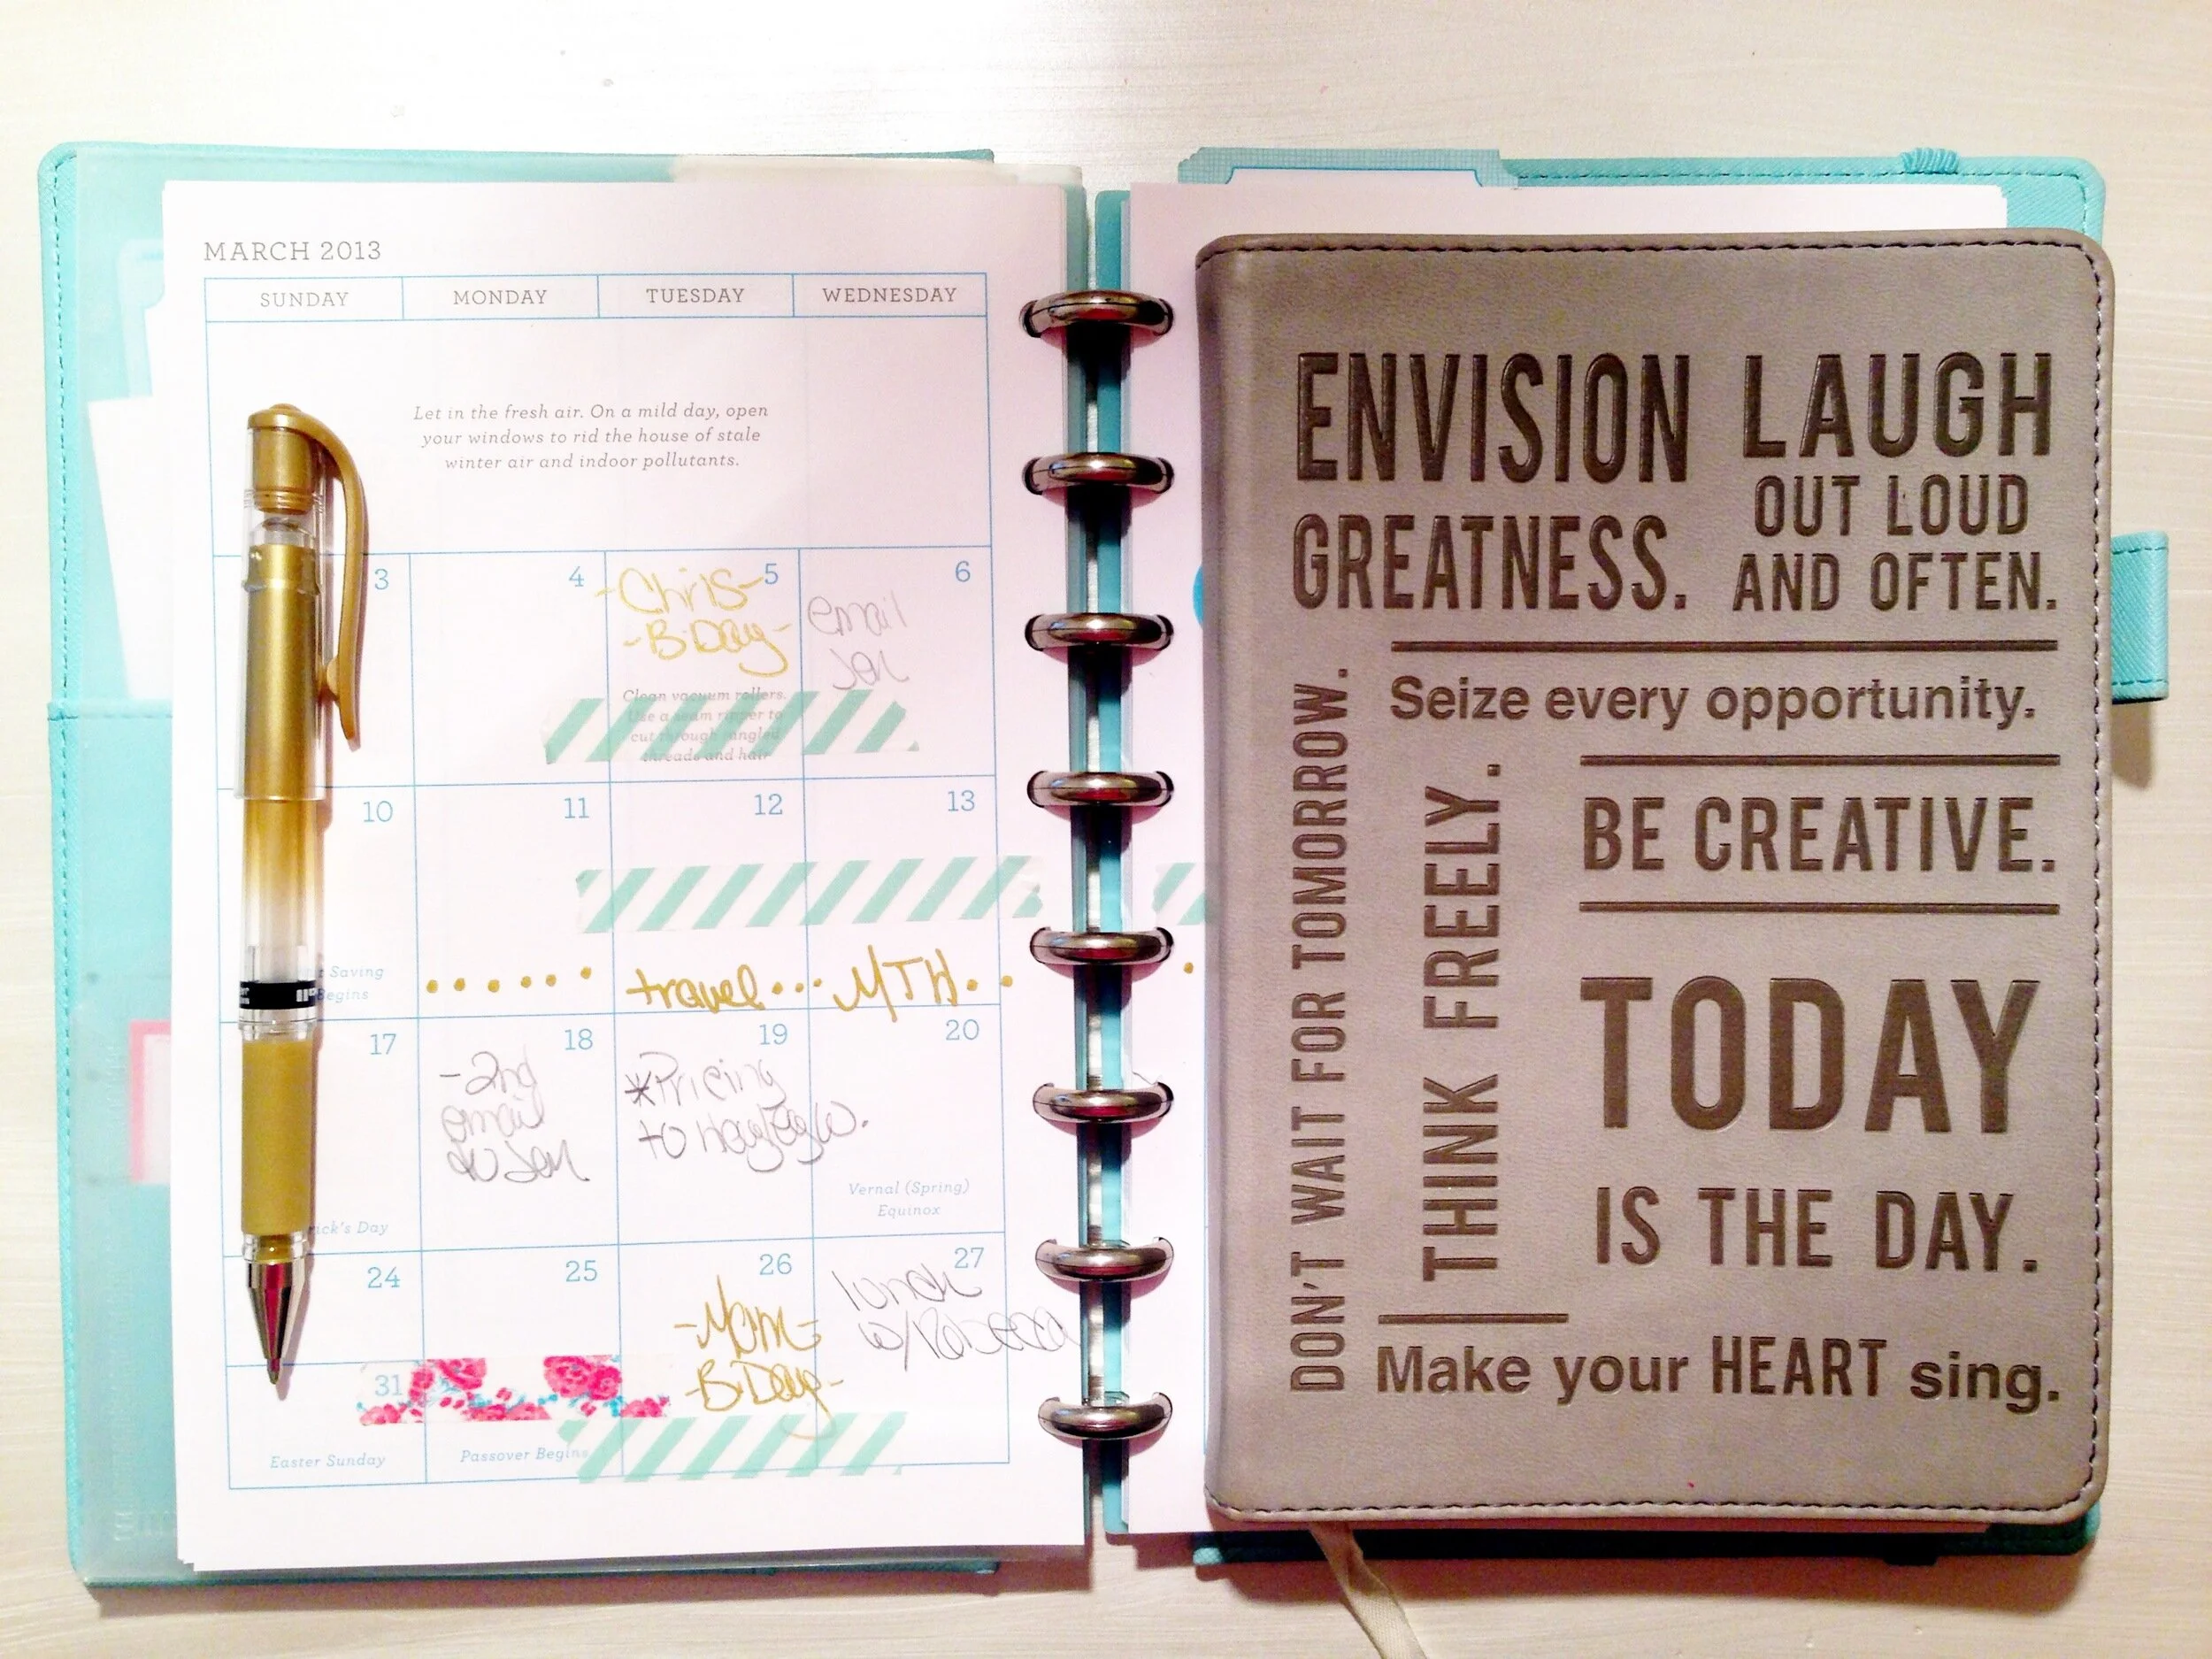 MARCH 2013
SUNDAY MONDAY TUESDAY WEDNESDAY
Let in the fresh air. On a mild day, open
your windows to rid the house of stale
winter air and indoor pollutants.
3 4 5 6
-Chris-
-B-Day-
email
Jen
Clean vacuum rollers.
Use a seam ripper to
cut through tangled
threads and hair
10 11 12 13
Saving
Begins
travel... MTH..
17 18 19 20
-2nd
email
to Jen
*Pricing
to
Vernal (Spring)
Equinox
rick's Day
24 25 26 27
-Mom-
-B-Day-
lunch
w/Rebecca
31
Easter Sunday
Passover Begins
ENVISION
GREATNESS.
LAUGH
OUT LOUD
AND OFTEN.
Seize every opportunity.
DON'T WAIT FOR TOMORROW.
THINK FREELY.
BE CREATIVE.
TODAY
IS THE DAY.
Make your HEART sing.